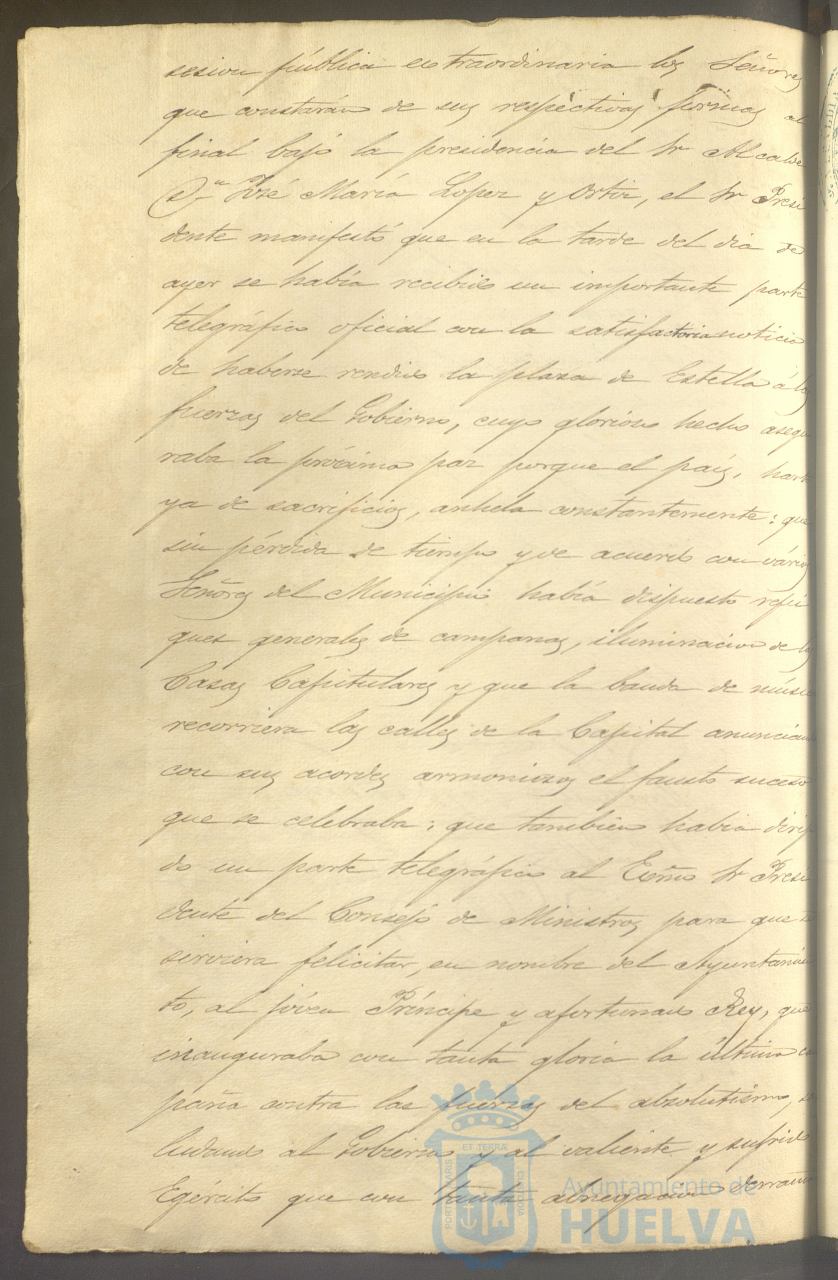 sesion pública extraordinaria los Señores
que constarán de sus respectivas firmas al
final bajo la presidencia del Sr Alcalde
Dn José María Lopez y Ortiz, el Sr Presi
dente manifestó que en la tarde del dia de
ayer se había recibido un importante parte
telegráfico oficial con la satisfactoria noticia
de haberse rendido la plaza de Estella á las
fuerzas del Gobierno, cuyo glorioso hecho asegu
raba la próxima paz porque el país, harto
ya de sacrificios, anhela constantemente: que
sin pérdida de tiempo y de acuerdo con vários
Señores del Municipio había dispuesto repi
ques generales de campanas, iluminacion de las
Casas Capitulares y que la banda de música
recorriera las calles de la Capital anunciando
con sus acordes armoniosos el fausto suceso
que se celebraba; que tambien habia dirigi
do un parte telegráfico al Exmo Sr Presi
dente del Consejo de Ministros para que se
sirviera felicitar, en nombre del Ayuntamien
to, al jóven Príncipe y afortunado Rey, que
inauguraba con tanta gloria la última cam
paña contra las fuerzas del absolutismo, sa
ludando al Gobierno y al valiente y sufrido
Egército que con tanta abnegacion
PORTUS MARIS ET TERRÆ CUSTODIA
Ayuntamiento de
HUELVA